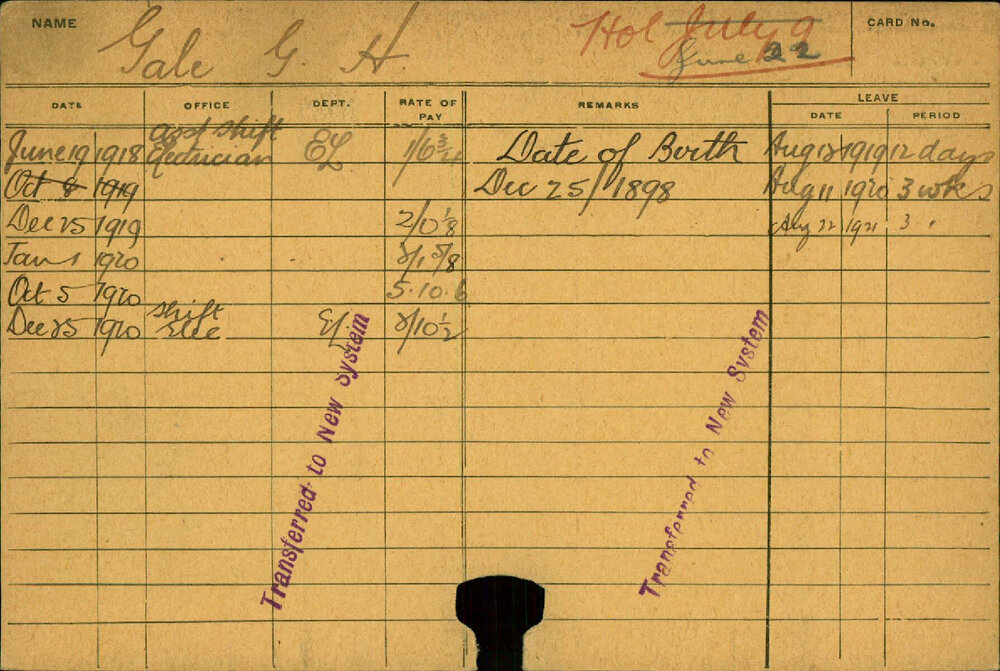 NAME Gale G. H. Hol July 9 CARD No.
June 22
DATE OFFICE DEPT. RATE OF PAY REMARKS LEAVE
DATE PERIOD
June 19 1918 Asst shift Electrician EL 1/6 3/4 Date of Birth Aug 12 1919 12 days
Oct 8 1919 Dec 25/1898 Aug 11 1920 3 wks
Dec 25 1919 2/0 1/8 Aug 22 1921 3 "
Jan 1 1920 2/1 5/8
Oct 5 1920 5.10.6
Dec 25 1920 Shift Elec EL 2/10 1/2
Transferred to New System
Transferred to New System